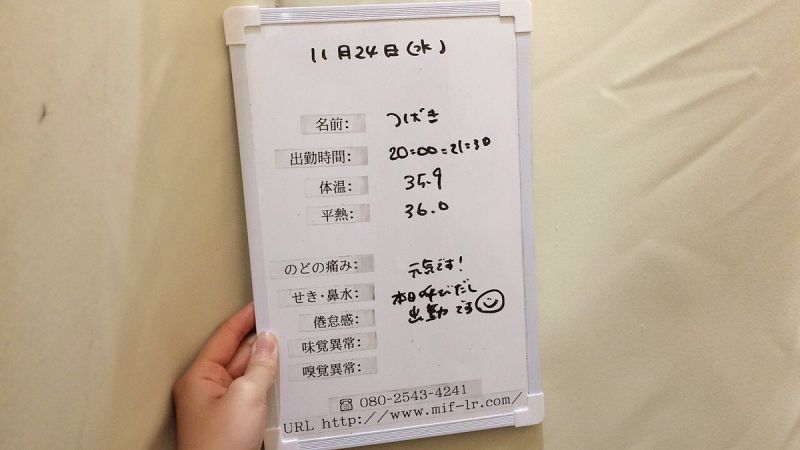 11月24日(水)
名前: つばき
出勤時間: 20:00-21:30
体温: 35.9
平熱: 36.0
のどの痛み: 元気です!
せき・鼻水: 本日呼びだし
倦怠感: 出勤です
味覚異常:
嗅覚異常:
☎ 080-2543-4241
URL http://www.mif-lr.com/